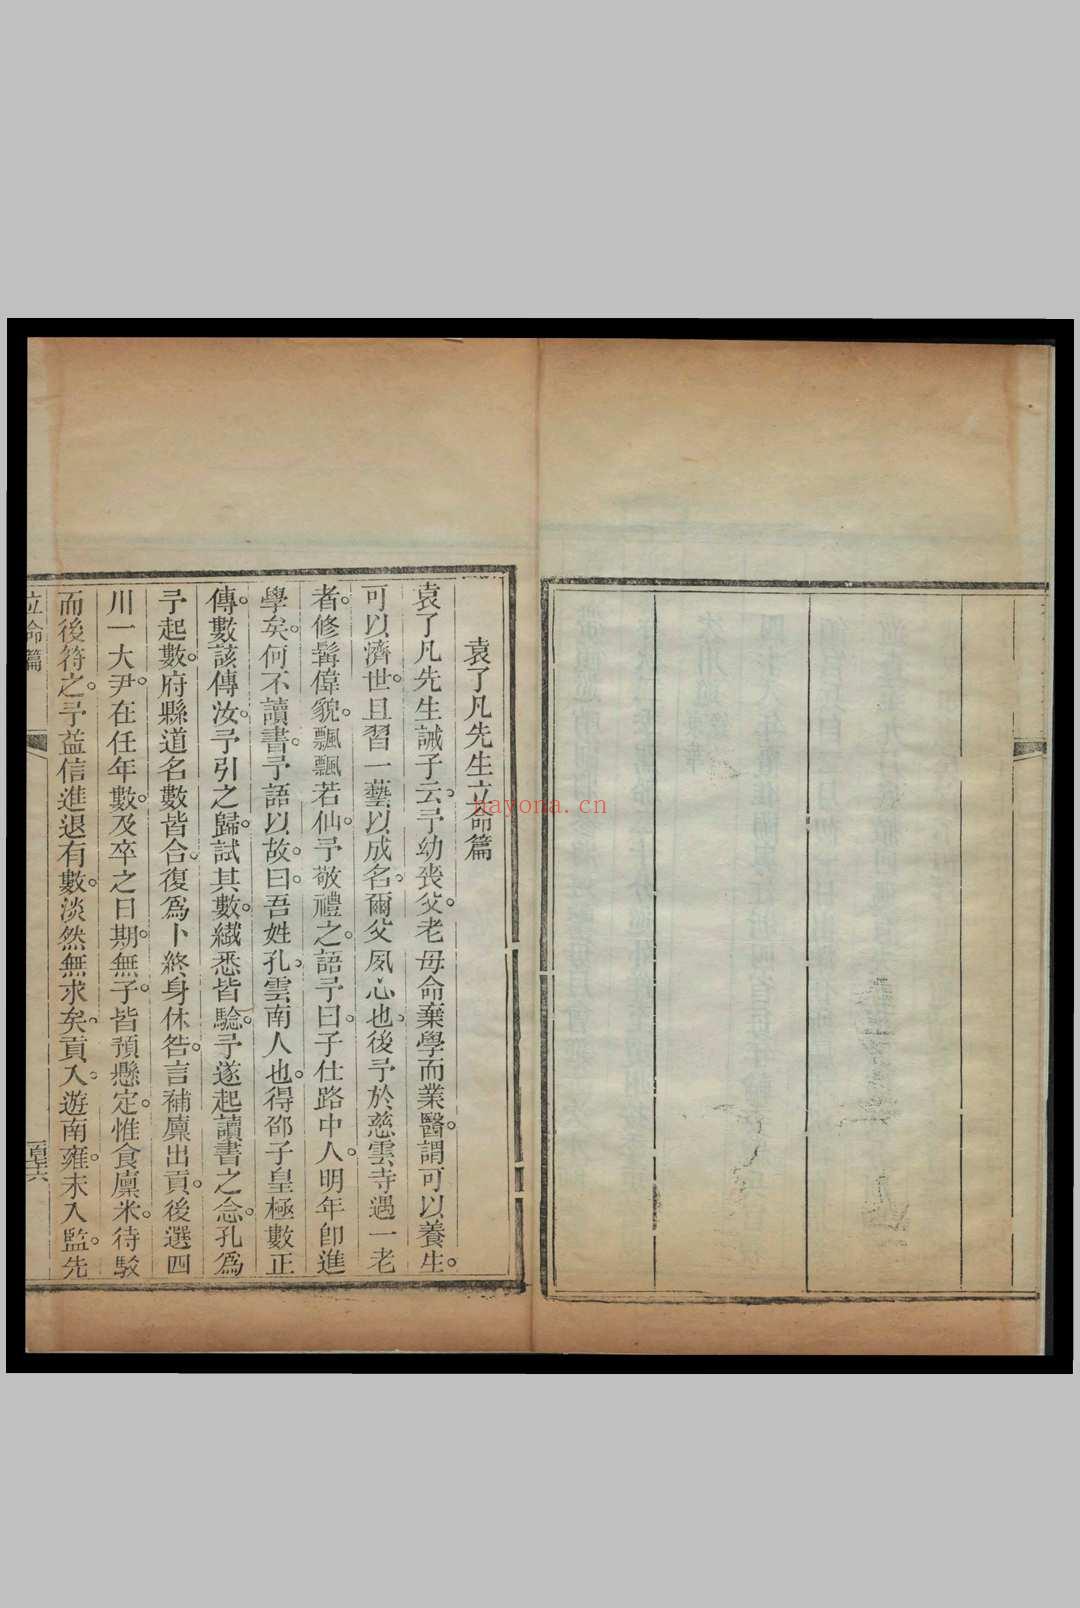 袁了凡先生立命篇
袁了凡先生誡子云。予幼喪父。老母命棄學而業醫。謂可以養生。
可以濟世。且習一藝以成名。爾父夙心也。後予於慈雲寺遇一老
者。修髯偉貌。飄飄若仙。予敬禮之。語予曰。子仕路中人。明年卽進
學矣。何不讀書。予語以故。曰。吾姓孔。雲南人也。得邵子皇極數正
傳。數該傳汝。予引之歸。試其數。纎悉皆驗。予遂起讀書之念。孔爲
予起數。府縣道名數皆合。復爲卜終身休咎。言補廩出貢。後選四
川一大尹。在任年數。及卒之日期。無子。皆預懸定。惟食廩米。待駁
而後符之。予益信進退有數。淡然無求矣。貢入。遊南雍。未入監。先
立命篇
hayona.cn